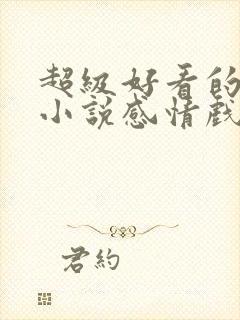 超級好看的
小說感情戲
君約